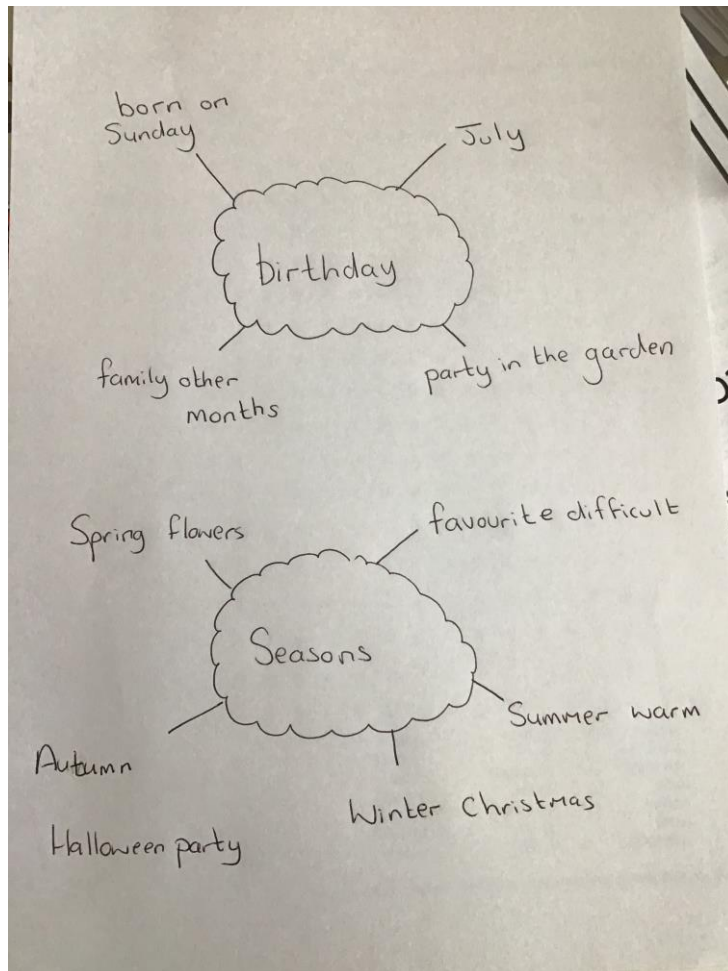 born on
Sunday
July
birthday
family other
months
party in the garden
Spring flowers
favourite difficult
Seasons
Summer warm
Autumn
Winter Christmas
Halloween party